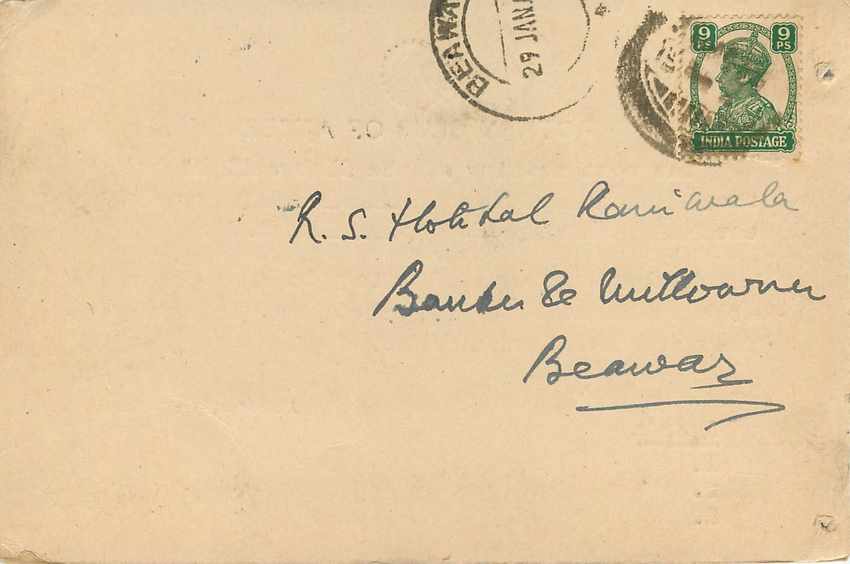 BEAWA
29 JAN
9 9
PS PS
INDIA POSTAGE
R. S. Motilal Raniwala
Banker & Millowner
Beawar